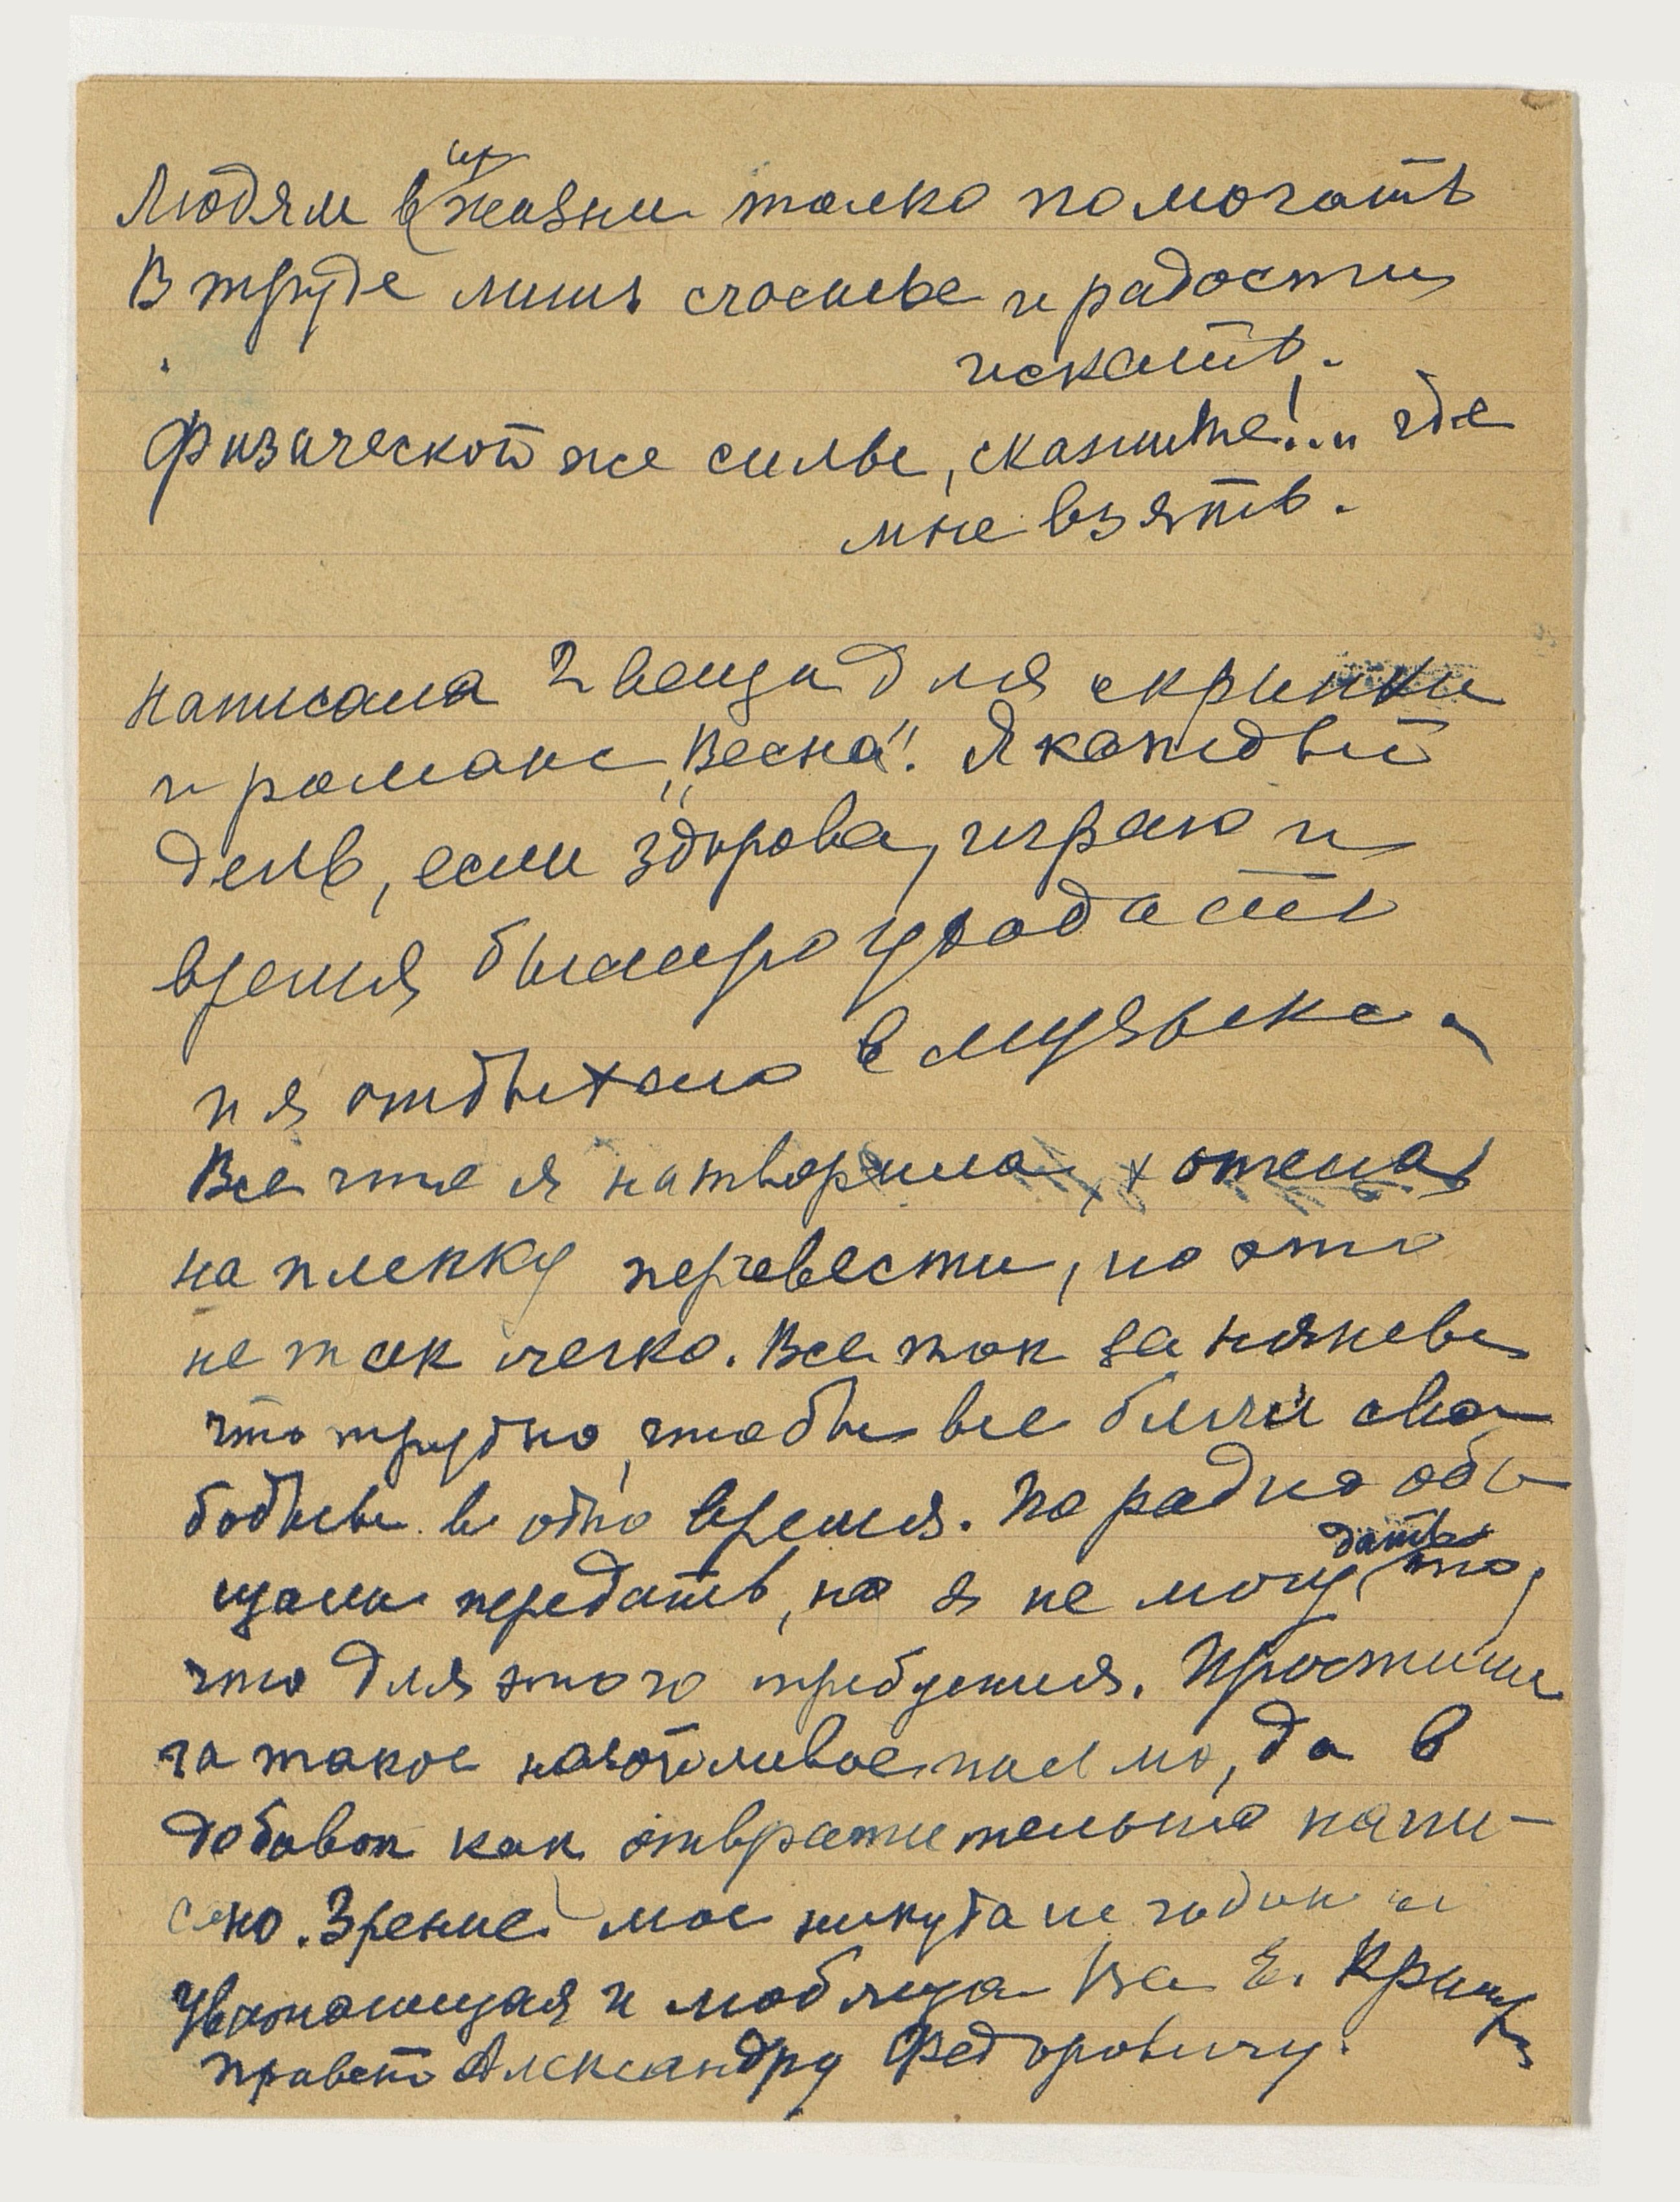 Людям в их жизни только помогать
В труде лишь счастье и радости
искать.
Физической же силы, скажите!... где
мне взять.
Написала 2 вещи для скрипки
и романс „Весна“. Я каждый
день, если здорова, играю и
время быстро
и я отдыхаю в музыке.
Все что я натворила, хотела
на пленку перевести, но это
не так легко. Все так заняты
что трудно, чтобы все были сво-
бодны в одно время. По радио обе-
щали передать, но я не могу дать то,
что для этого требуется. Простите
за такое письмо, да в
добавок как отвратительно напи-
сано. Зрение мое никуда не годится
Уважающая и любящая Вас Е.
Привет Александру Федоровичу.